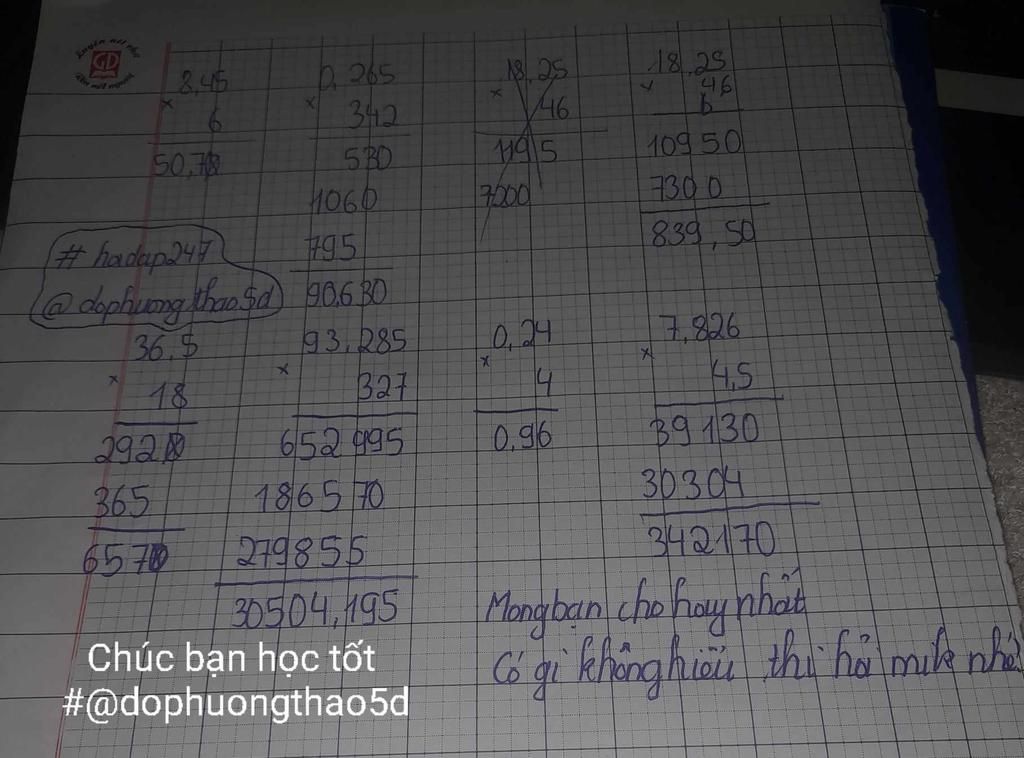 GD
8,45
×
6
50,70
0,265
×
342
530
1060
795
90,630
18,25
×
46
1195
7000
18,25
×
46
10950
7300
839,50
# hoidap247
@dophuongthao5d
36,5
×
18
2920
365
6570
93,285
×
327
652995
186570
279855
30504,195
0,24
×
4
0,96
7,826
×
4,5
39130
30304
342170
Mong bạn cho hay nhất
Có gì không hiểu thì hỏi mik nhé
Chúc bạn học tốt
#@dophuongthao5d